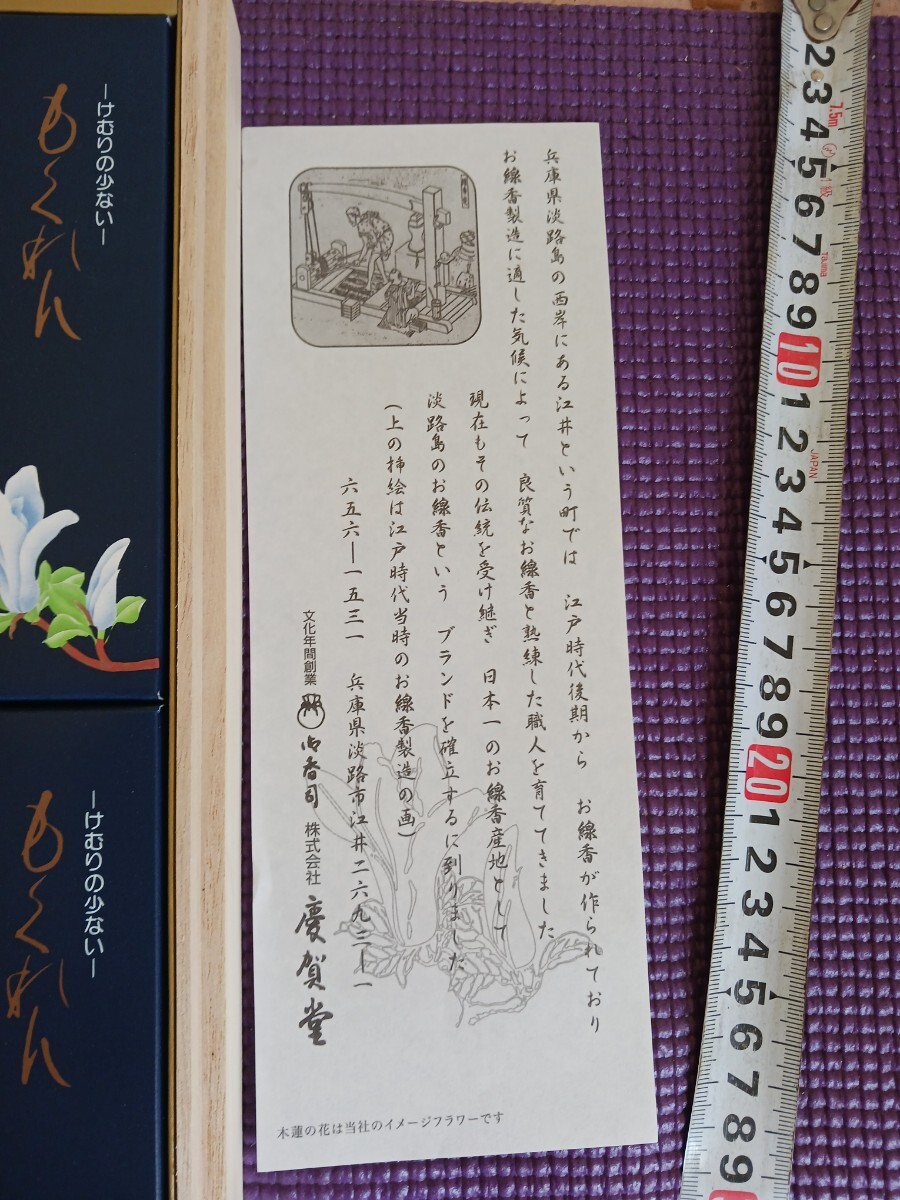 兵庫県淡路島の西岸にある江井という町では 江戸時代後期から お線香が作られており
お線香製造に適した気候によって 良質なお線香と熟練した職人を育ててきました
現在もその伝統を受け継ぎ 日本一のお線香産地として
淡路島のお線香という ブランドを確立するに到りました
(上の挿絵は江戸時代当時のお線香製造の画)
六五六―一五三一 兵庫県淡路市江井二六九二―一
文化年間創業 御香司 株式会社 慶賀堂
木蓮の花は当社のイメージフラワーです
―けむりの少ない―
もくれん
―けむりの少ない―
もくれん
2
3
4
5
6
7
8
9
10
1
2
3
4
5
6
7
8
9
20
1
2
3
4
5
6
7
8
9
7.5m
1級
Tajima
JAPAN